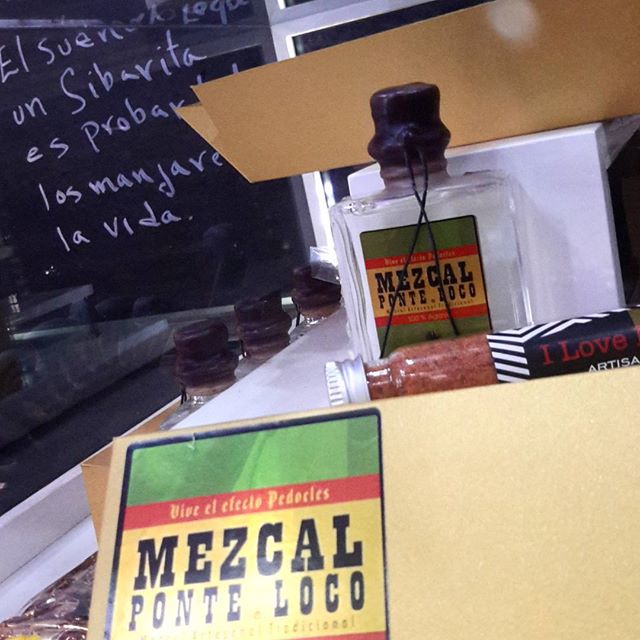 El sueño
un Sibarita
es probar
los manjare
la vida.
Vive el efecto Pedocles
MEZCAL
PONTE LOCO
Mezcal Artesanal Tradicional
100% Agave
I Love
ARTISA
Vive el efecto Pedocles
MEZCAL
PONTE LOCO
Mezcal Artesanal Tradicional